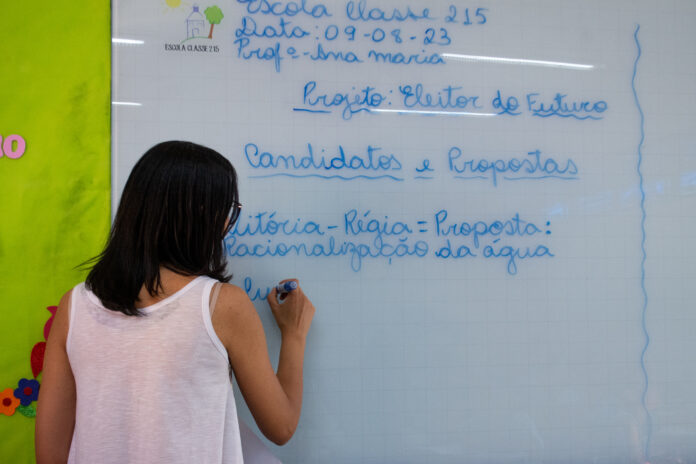 Escola Classe 215
Data: 09-08-23
Profª-Ana maria
ESCOLA CLASSE 215
Projeto: Eleitor do Futuro
Candidatos e Propostas
Vitória-Régia = Proposta:
Racionalização da água